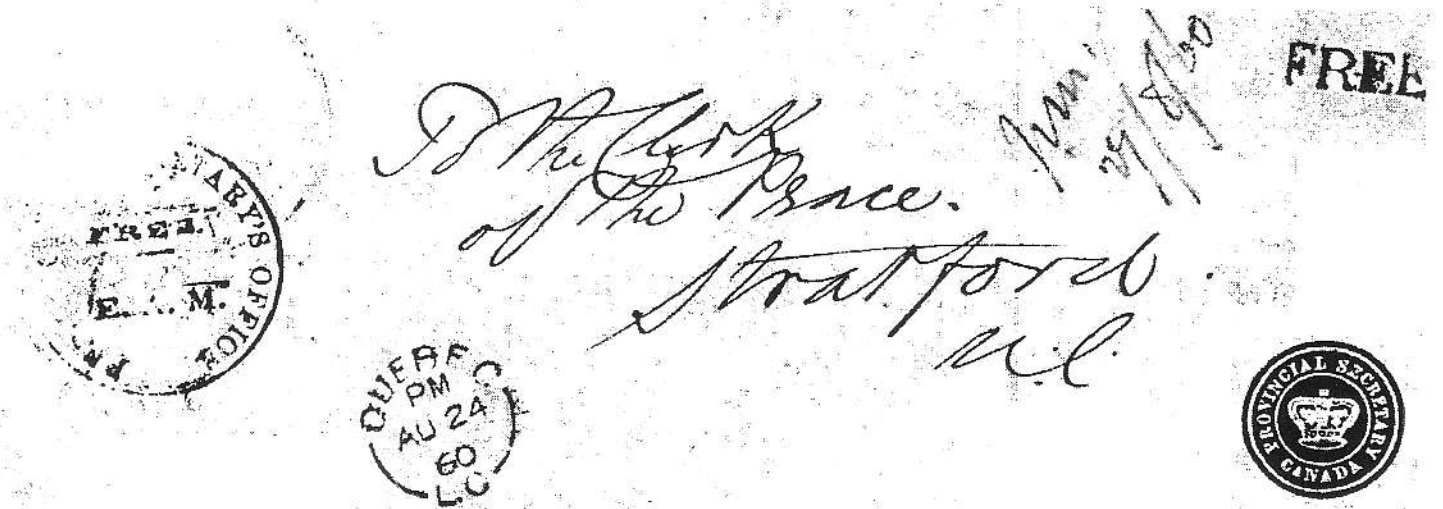 FREE
To the Clerk
of the Peace.
Stratford
U.C.
29/8/60
TARY'S OFFICE
FREE.
E. M.
QUEBEC
PM
AU 24
60
L.C
PROVINCIAL SECRETARY
CANADA